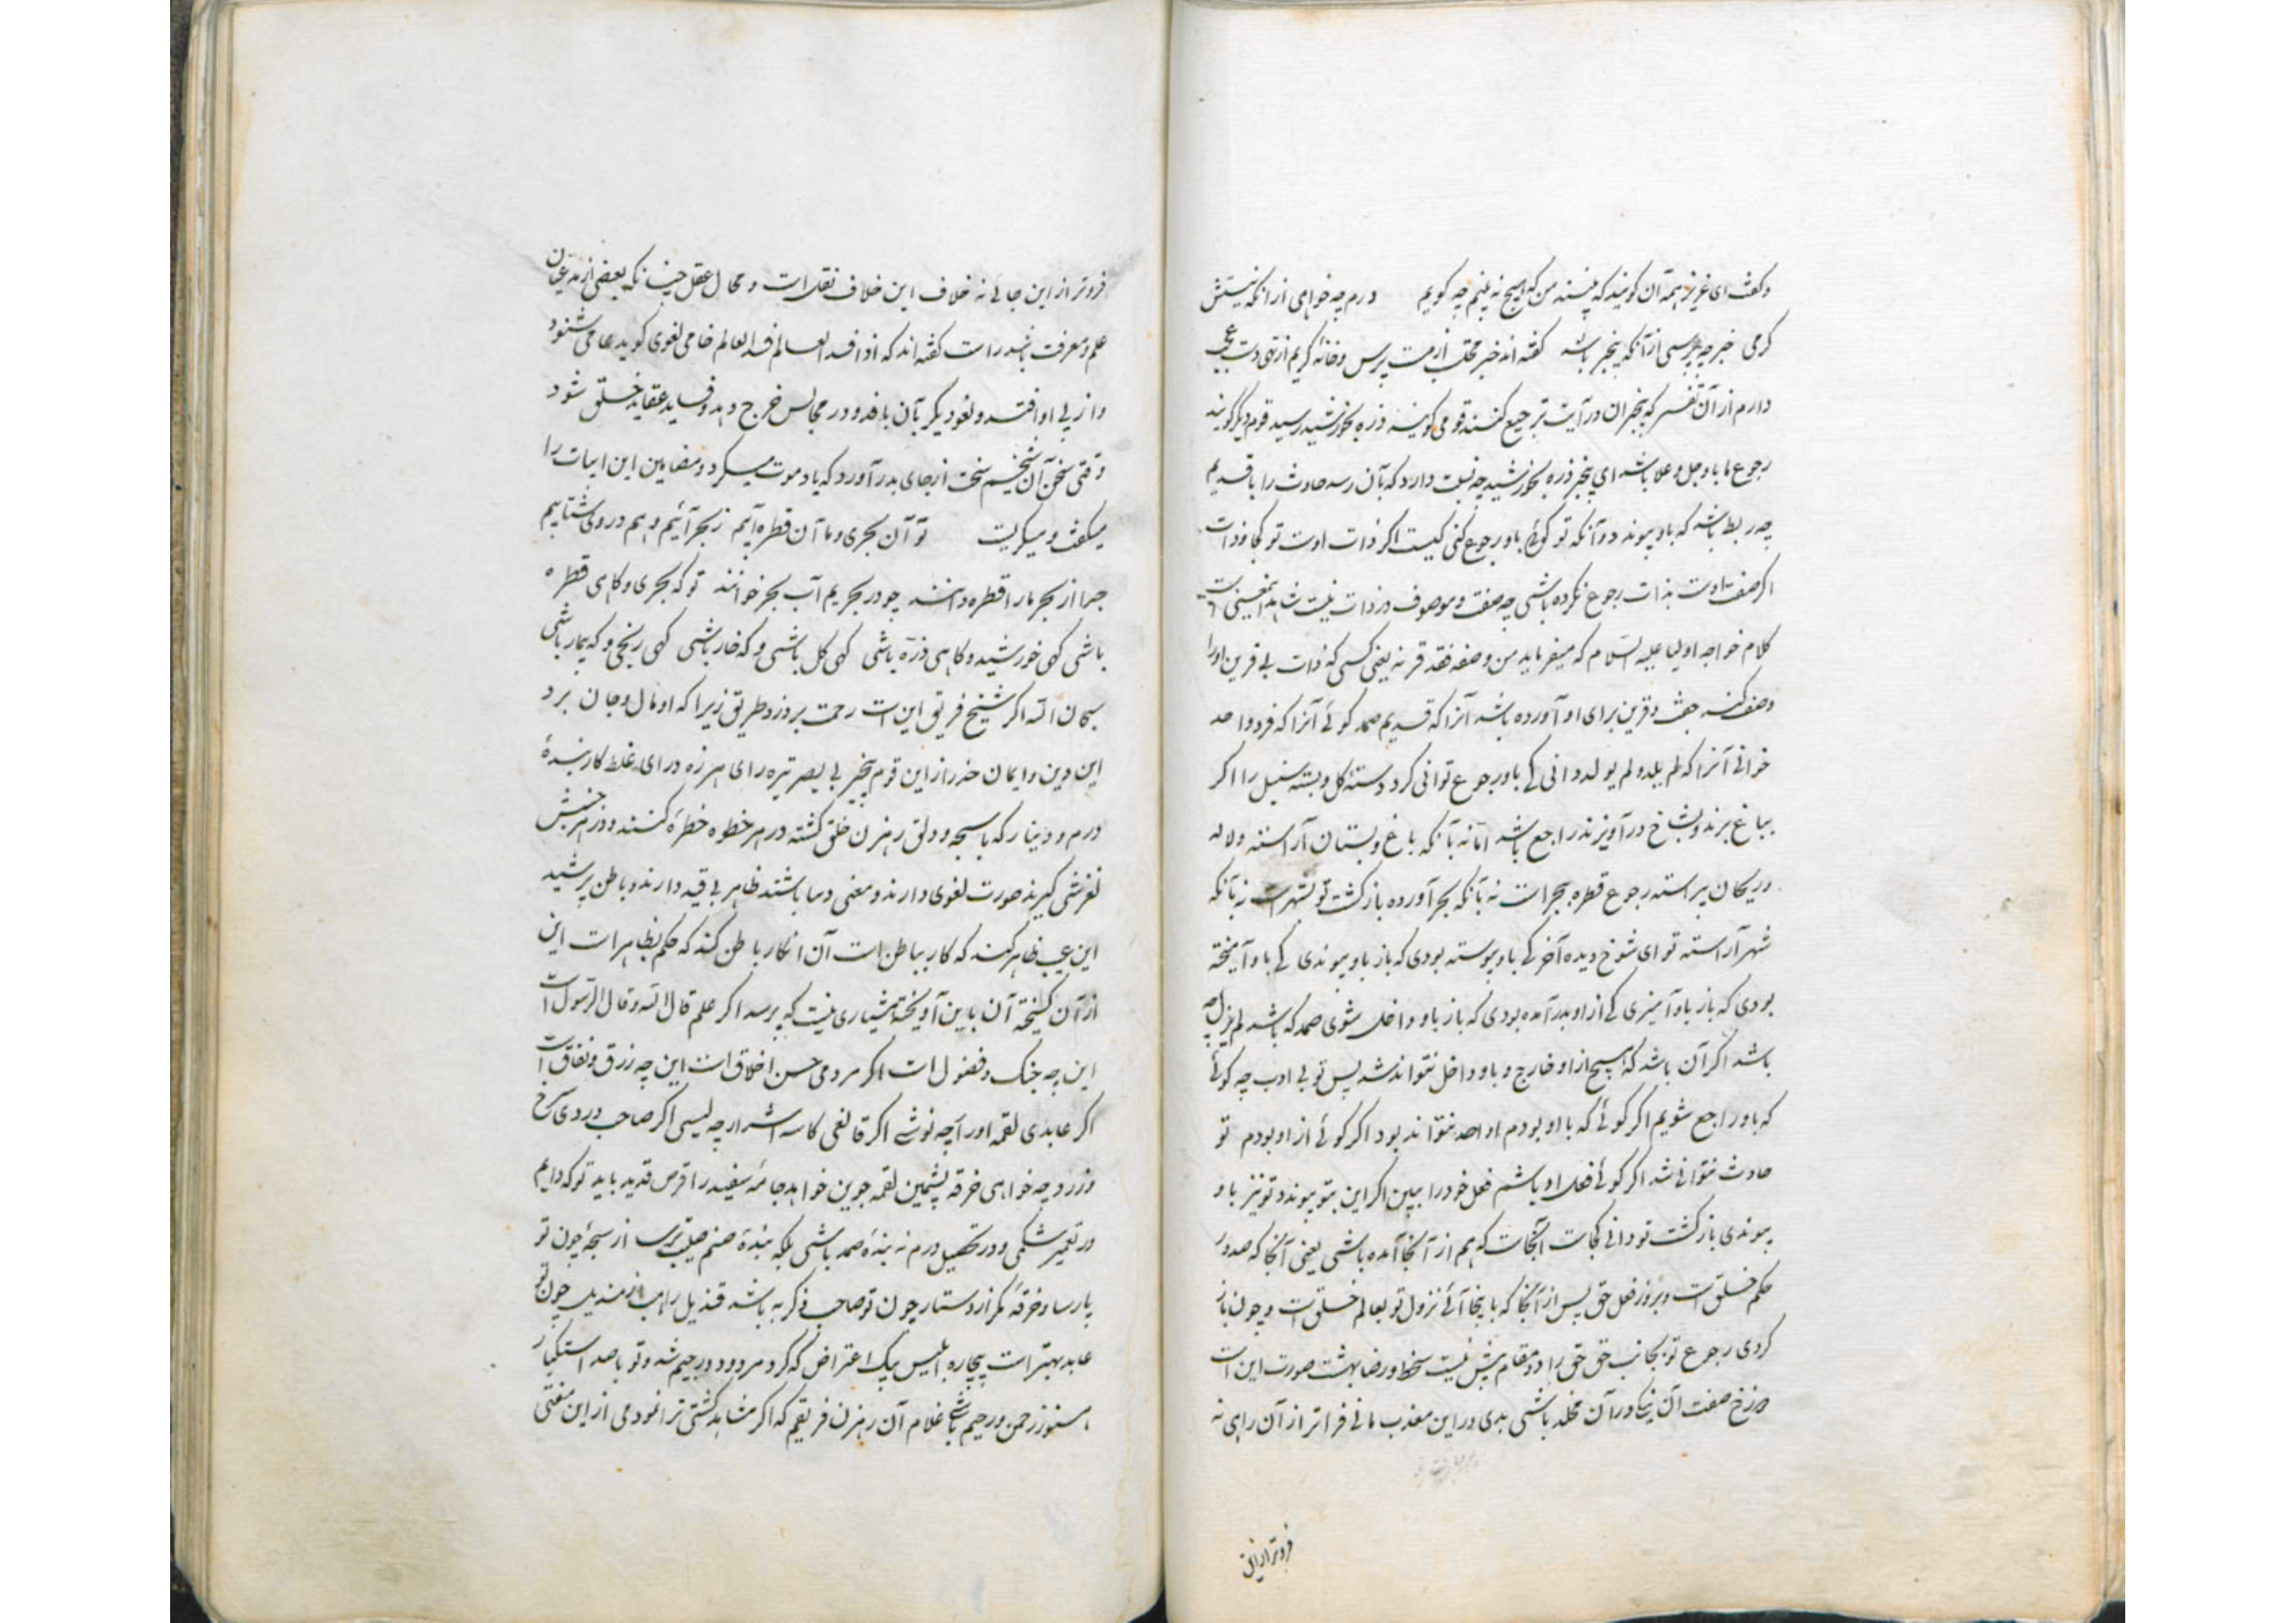 و گفت ای عزیز همه آن گویند که بینند من که هیچ نه بینم چه گویم درم چه خواهی از آنکه نیستش
کرمی خبر چه پرسی از آنکه بیخبر باشد گفته اند خبر محتسب از مست پرس و خانه کریم از تهی دست عجب
دارم از آن نفس که بیخبران در آیت ترجیع کنند قومی گویند ذره بخورشید رسید قوم دیگر گویند
رجوع ما باو جل و علا باشد ای بیخبر ذره بخورشید چه نسبت دارد که بآن رسد حادث را با قدیم
چه ربط باشد که باو پیوندد و آنکه تو گوئی باو رجوع کنی کیست اگر ذات اوست تو کجا و ذات
اگر صفت اوست بذات رجوع نکرده باشی چه صفت و موصوف در ذات نیست شاهد اینمعنی
کلام خواجه اولیا علیه السلام که میفرماید من وصفه فقد قرنه یعنی کسی که ذات بی قرین او را
وصف کند جفت و قرین برای او آورده باشد آنرا که قدیم صمد گوئی آنرا که فرد واحد
خوانی آنرا که لم یلد و لم یولد دانی کی باو رجوع توانی کرد دسته گل و بسته سنبل را اگر
بباغ برند و بشاخ درآویزند راجع باشد اما نه بآنکه باغ و بستان آراسته و لاله
و ریحان پیراسته رجوع قطره ببحر است نه بآنکه بحر آورده بازگشت تو بشهر است نه بآنکه
شهر آراسته تو ای شوخ دیده آخر کی باو پیوسته بودی که باز باو پیوندی کی باو آمیخته
بودی که باز باو آمیزی کی از او بدر آمده بودی که باز باو داخل شوی صمد که باشد لم یزل چه
باشد اگر آن باشد که هیچ از او خارج و باو داخل نتواند شد پس تو بی ادب چه گوئی
که باو راجع شویم اگر گوئی که با او بودم او احد نتواند بود اگر گوئی از او بودم تو
حادث نتوانی شد اگر گوئی فعل او باشم فعل خود را ببین اگر این بتو پیوندد تو نیز باو
پیوندی بازگشت تو دانی کجاست آنجاست که هم از آنجا آمده باشی یعنی آنجا که صدور
حکم خلق است و بروز فعل حق پس از آنجا که باینجا آئی نزول تو بعالم خلق است و چون باز
گردی رجوع تو بجانب حق حق را دو مقام بیش نیست سخط و رضا بهشت صورت این است
دوزخ صفت آن نیکی در آن مخلد باشی بدی در این معذب مانی فراتر از آن راهی نه
فروتر از این
فروتر از این جائی نه خلاف این خلاف نقل است و محال عقل چنانکه بعضی از مدعیان
علم و معرفت باشد راست گفته اند که اذا فسد العالم فسد العالم خامی لغوی گوید عامی شنود
و از پی او افتد و لغو دیگر بآن بافد و در مجالس خرج دهد و فساید عقاید خلق شود
وقتی سخن آن شیخم سخت از جای بدر آورد که یاد موت میکرد و مضامین این ابیات را
میگفت و میگریت تو آن بحری و ما آن قطره آئیم ز بحر آئیم و هم در وی شتابیم
چرا از بحر ما را قطره دانند چو در بحریم آب بحر خوانند تو که بحری و گاهی قطره
باشی گهی خورشید و گاهی ذره باشی گهی گل باشی و گه خار باشی گهی رنجی و گه بیمار باشی
سبحان الله اگر شیخ فریق این است رحمت بر دزد طریق زیرا که او مال و جان برد
این دین و ایمان حذر از این قوم بیخبر بی بصر تیره رای هرزه درای غلط کار بندهٔ
درم و دینار که با سبحه و دلق رهزن خلق گشته در هر خطوه خطرهٔ کنند و در هر جنبش
لغزشی گیرند صورت لغوی دارند و معنی دما باشند ظاهر بی قید دارند و باطن پر شید
این عیب ظاهر کند که کار بباطن است آن انکار باطن کند که حکم بظاهر است این
از آن گسیخته آن باین آویخته هشیاری نیست که پرسد اگر علم قال الله و قال الرسول است
این چه جنگ و فضول است اگر مردمی حسن اخلاق است این چه زرق و نفاق است
اگر عابدی لقمه اورا چه نوشی اگر قانعی کاسه اشرار چه لیسی اگر صاحب دردی سرخ
و زرد چه خواهی خرقه پشمین لقمه جوین خواهد جامهٔ سفید را قرص قدید باید تو که دایم
در تعمیر شکمی و در تحصیل درم نه بندهٔ صمد باشی بلکه بندهٔ صنم صلیب ترسا از سبحهٔ چون تو
پارسا و خرقهٔ گبر از دستار چون تو صاحب ذکر به باشد قندیل راهب از مندیل چون تو
عابد بهتر است بیچاره ابلیس بیک اعتراض که کرد مردود و رجیم شد و تو با صد استکبار
هنوز رحمن و رحیم باشی غلام آن رهزن فریقم که اگر مشاهد گشتی ترا نمودمی از این مفتی